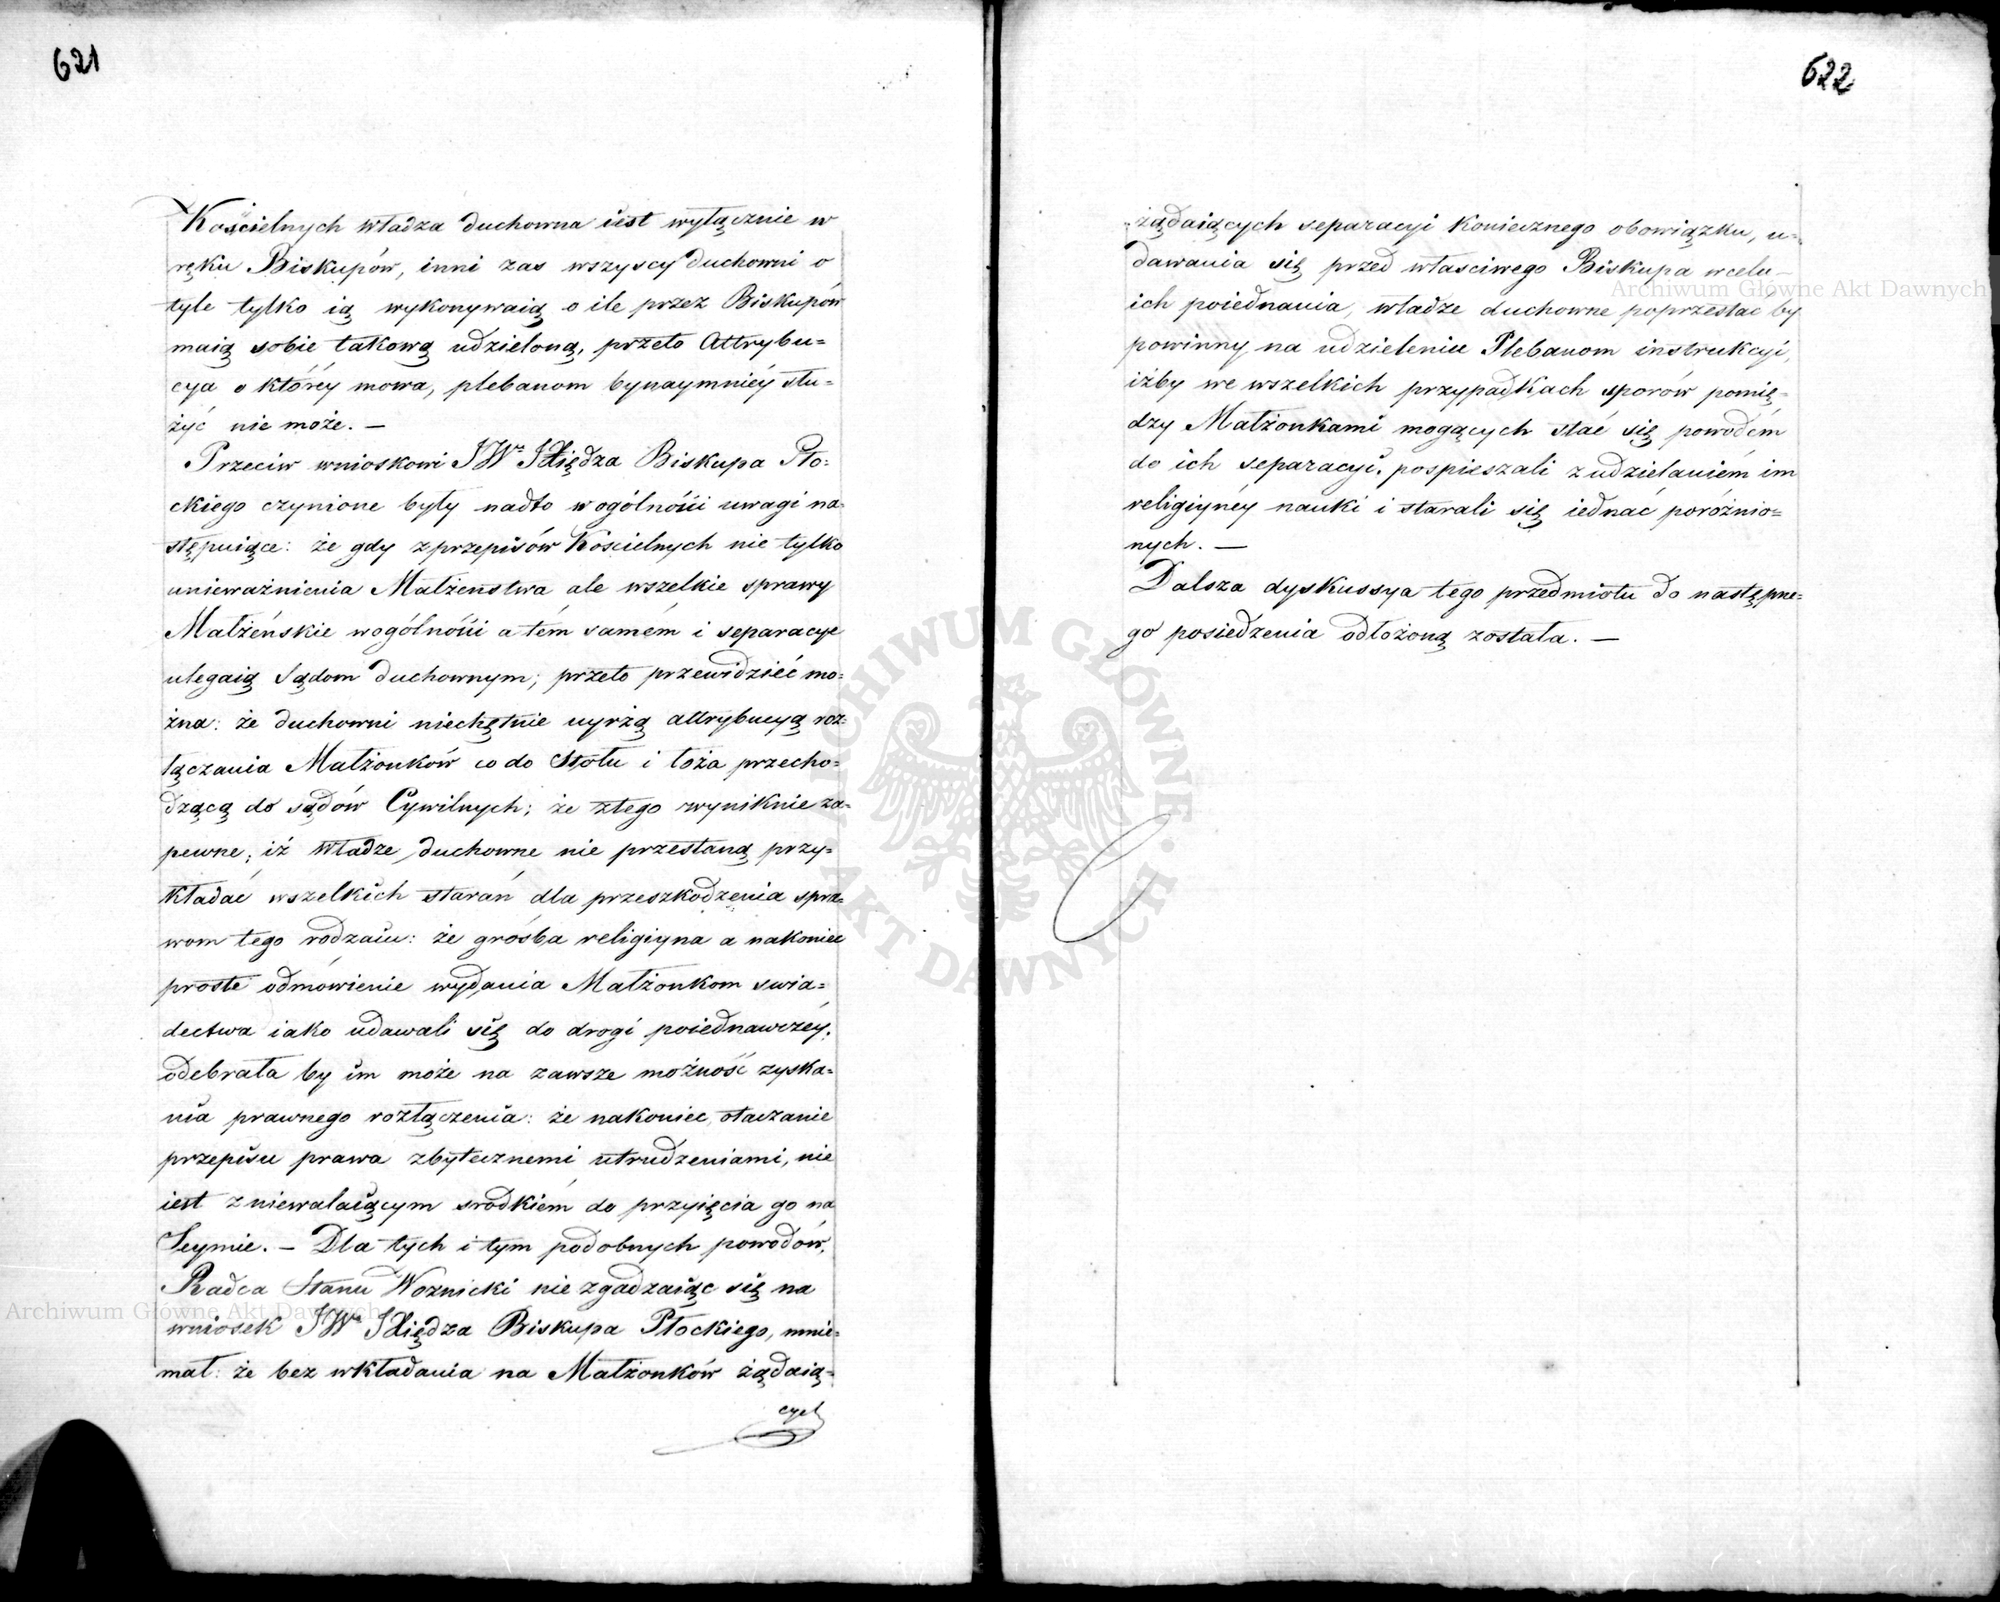 621
Kościelnych władza duchowna iest wyłącznie w
ręku Biskupów, inni zas wszyscy duchowni o
tyle tylko ią wykonywaią o ile przez Biskupów
maią sobie takową udzieloną, przeto Attrybu=
cya o któréy mowa, plebanom bynaymniéy słu=
żyć nie może. —
Przeciw wnioskowi JWo JXiędza Biskupa Pło=
ckiego czynione były nadto w ogólności uwagi na=
stępuiące: że gdy z przepisów Kościelnych nie tylko
unieważnienia Małżenstwa ale wszelkie sprawy
Małżeńskie w ogólności a tém samém i separacye
ulegaią Sądom duchownym; przeto przewidzieć mo=
żna: że duchowni niechętnie uyrżą attrybucyą roz=
łączania Małżonków co do Stołu i łoża przecho=
dzącą do sądów Cywilnych; że ztego wyniknie za=
pewne, iż Władze duchowne nie przestaną przy=
kładać wszelkich starań dla przeszkodzenia spra=
wom tego rodzaiu: że grośba religiyna a nakoniec
proste odmówienie wydania Małżonkom swia=
dectwa iako udawali się do drogi poiednawczéy,
odebrała by im może na zawsze możność zyska=
nia prawnego rozłączenia: że nakoniec otaczanie
przepisu prawa zbytecznemi utrudzeniami, nie
iest zniewalaiącym srodkiém do przyięcia go na
Seymie. — Dla tych i tym podobnych powodów,
Radca Stanu Woznicki nie zgadzaiąc się na
wniosek JWo JXiędza Biskupa Płockiego, mnie=
mał: że bez wkładania na Małżonków żądaią=
cych
622
żądaiących separacyi koniecznego obowiązku, u=
dawania się przed własciwego Biskupa w celu
ich poiednania, władze duchowne poprzestać by
powinny na udzieleniu Plebanom instrukcyi,
iżby we wszelkich przypadkach sporów pomię=
dzy Małżonkami mogących stać się powodém
do ich separacyi, pospieszali z udzielaniém im
religiynéy nauki i starali się iednać poróżnio=
nych. —
Dalsza dyskussya tego przedmiotu do następne=
go posiedzenia odłożoną została. —
Archiwum Główne Akt Dawnych
Archiwum Główne Akt Dawnych
ARCHIWUM GŁÓWNE AKT DAWNYCH